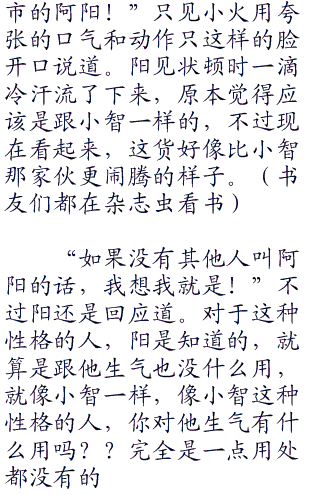 市的阿阳！”只见小火用夸
张的口气和动作只这样的脸
开口说道。阳见状顿时一滴
冷汗流了下来，原本觉得应
该是跟小智一样的，不过现
在看起来，这货好像比小智
那家伙更闹腾的样子。（书
友们都在杂志虫看书）
“如果没有其他人叫阿
阳的话，我想我就是！”不
过阳还是回应道。对于这种
性格的人，阳是知道的，就
算是跟他生气也没什么用，
就像小智一样，像小智这种
性格的人，你对他生气有什
么用吗？？完全是一点用处
都没有的